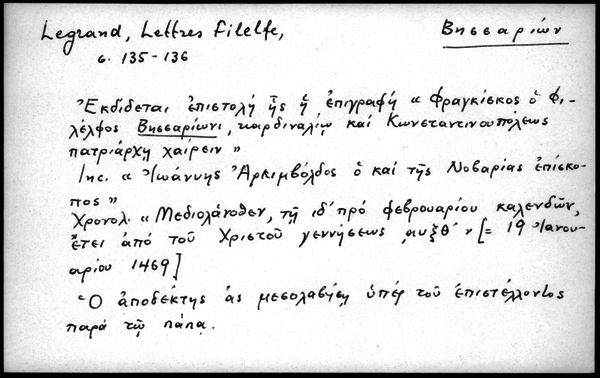 Legrand, Lettres Filelfe,
Βησσαρίων
σ. 135-136
Ἐκδίδεται ἐπιστολή ἧς ἡ ἐπιγραφή « Φραγκίσκος ὁ Φι-
λέλφος Βησσαρίωνι, καρδιναλίῳ καί Κωνσταντινουπόλεως
πατριάρχῃ χαίρειν »
Inc. « Ἰωάννης Ἀρκιμβόλδος ὁ καί τῆς Νοβαρίας ἐπίσκο-
πος »
Χρονολ. « Μεδιολάνοθεν, τῇ ιδ΄ πρό φεβρουαρίου καλενδῶν,
ἔτει ἀπό τοῦ Χριστοῦ γεννήσεως ͵αυξθ΄ » [= 19 Ἰανου-
αρίου 1469]
Ὁ ἀποδέκτης ἄς μεσολαβήσῃ ὑπέρ τοῦ ἐπιστέλλοντος
παρά τῷ πάπᾳ.